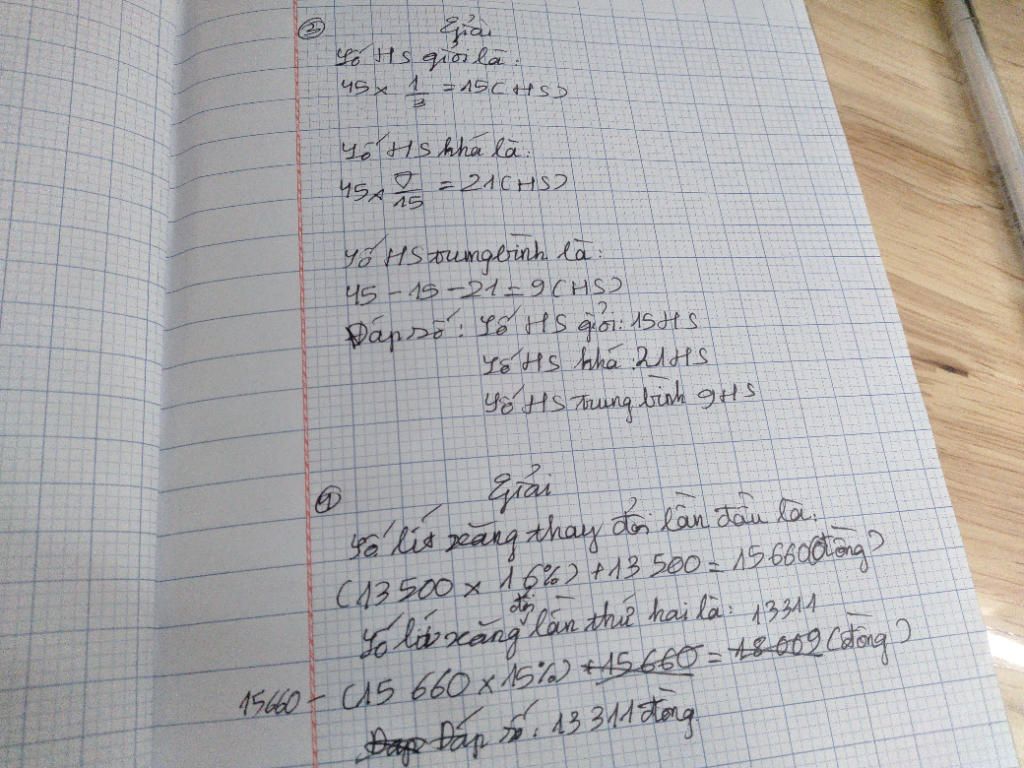 ② Giải
Số HS giỏi là:
45 × 1/3 = 15 (HS)
Số HS khá là:
45 × 7/15 = 21 (HS)
Số HS trung bình là:
45 - 15 - 21 = 9 (HS)
Đáp số: Số HS giỏi: 15 HS
Số HS khá: 21 HS
Số HS trung bình 9 HS
① Giải
Số lít xăng thay đổi lần đầu là:
(13 500 × 16%) + 13 500 = 15 660 (đồng)
Số lít xăng đổi lần thứ hai là: 13311
15660 - (15 660 × 15%) + 15 660 = 18 009 (đồng)
Đáp Đáp số: 13 311 đồng